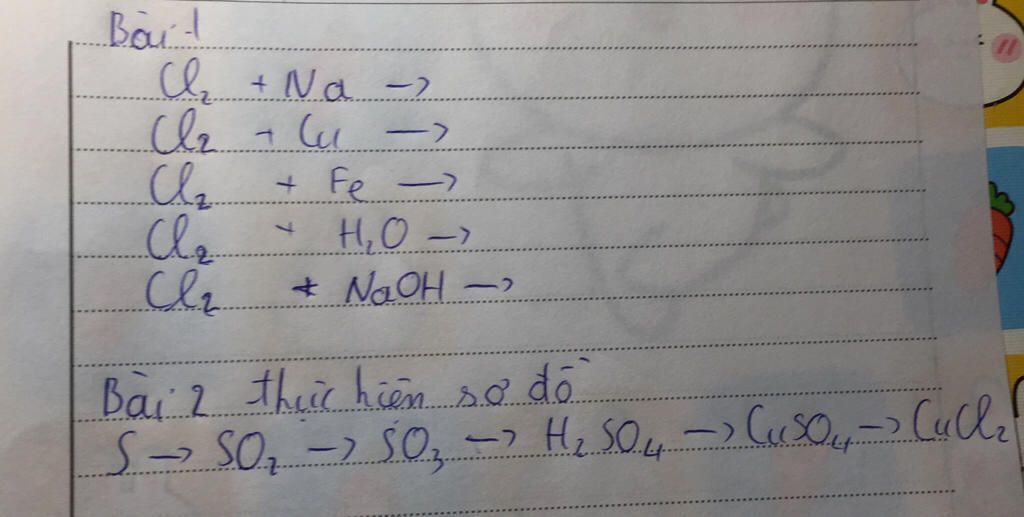 Bài 1
Cl₂ + Na →
Cl₂ + Cu →
Cl₂ + Fe →
Cl₂ + H₂O →
Cl₂ + NaOH →
Bài 2 thực hiện sơ đồ
S → SO₂ → SO₃ → H₂SO₄ → CuSO₄ → CuCl₂